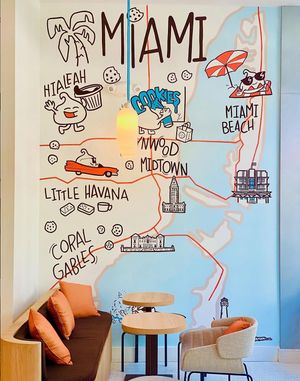 MIAMI
HIALEAH
COOKIES
MIAMI
BEACH
NWOOD
MIDTOWN
LITTLE HAVANA
CORAL
GABLES